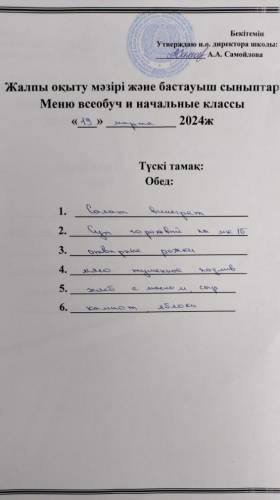 Бекітемін
Утверждаю и.о. директора школы:
А.А. Самойлова
Жалпы оқыту мәзірі және бастауыш сыныптар
Меню всеобуч и начальные классы
«19» марта 2024ж
Түскі тамақ:
Обед:
1. Салат винегрет
2. Суп гороховый на мк 1б
3. отварные рожки
4. мясо тушенное подлив
5. хлеб с маслом, сыр
6. компот, яблоки